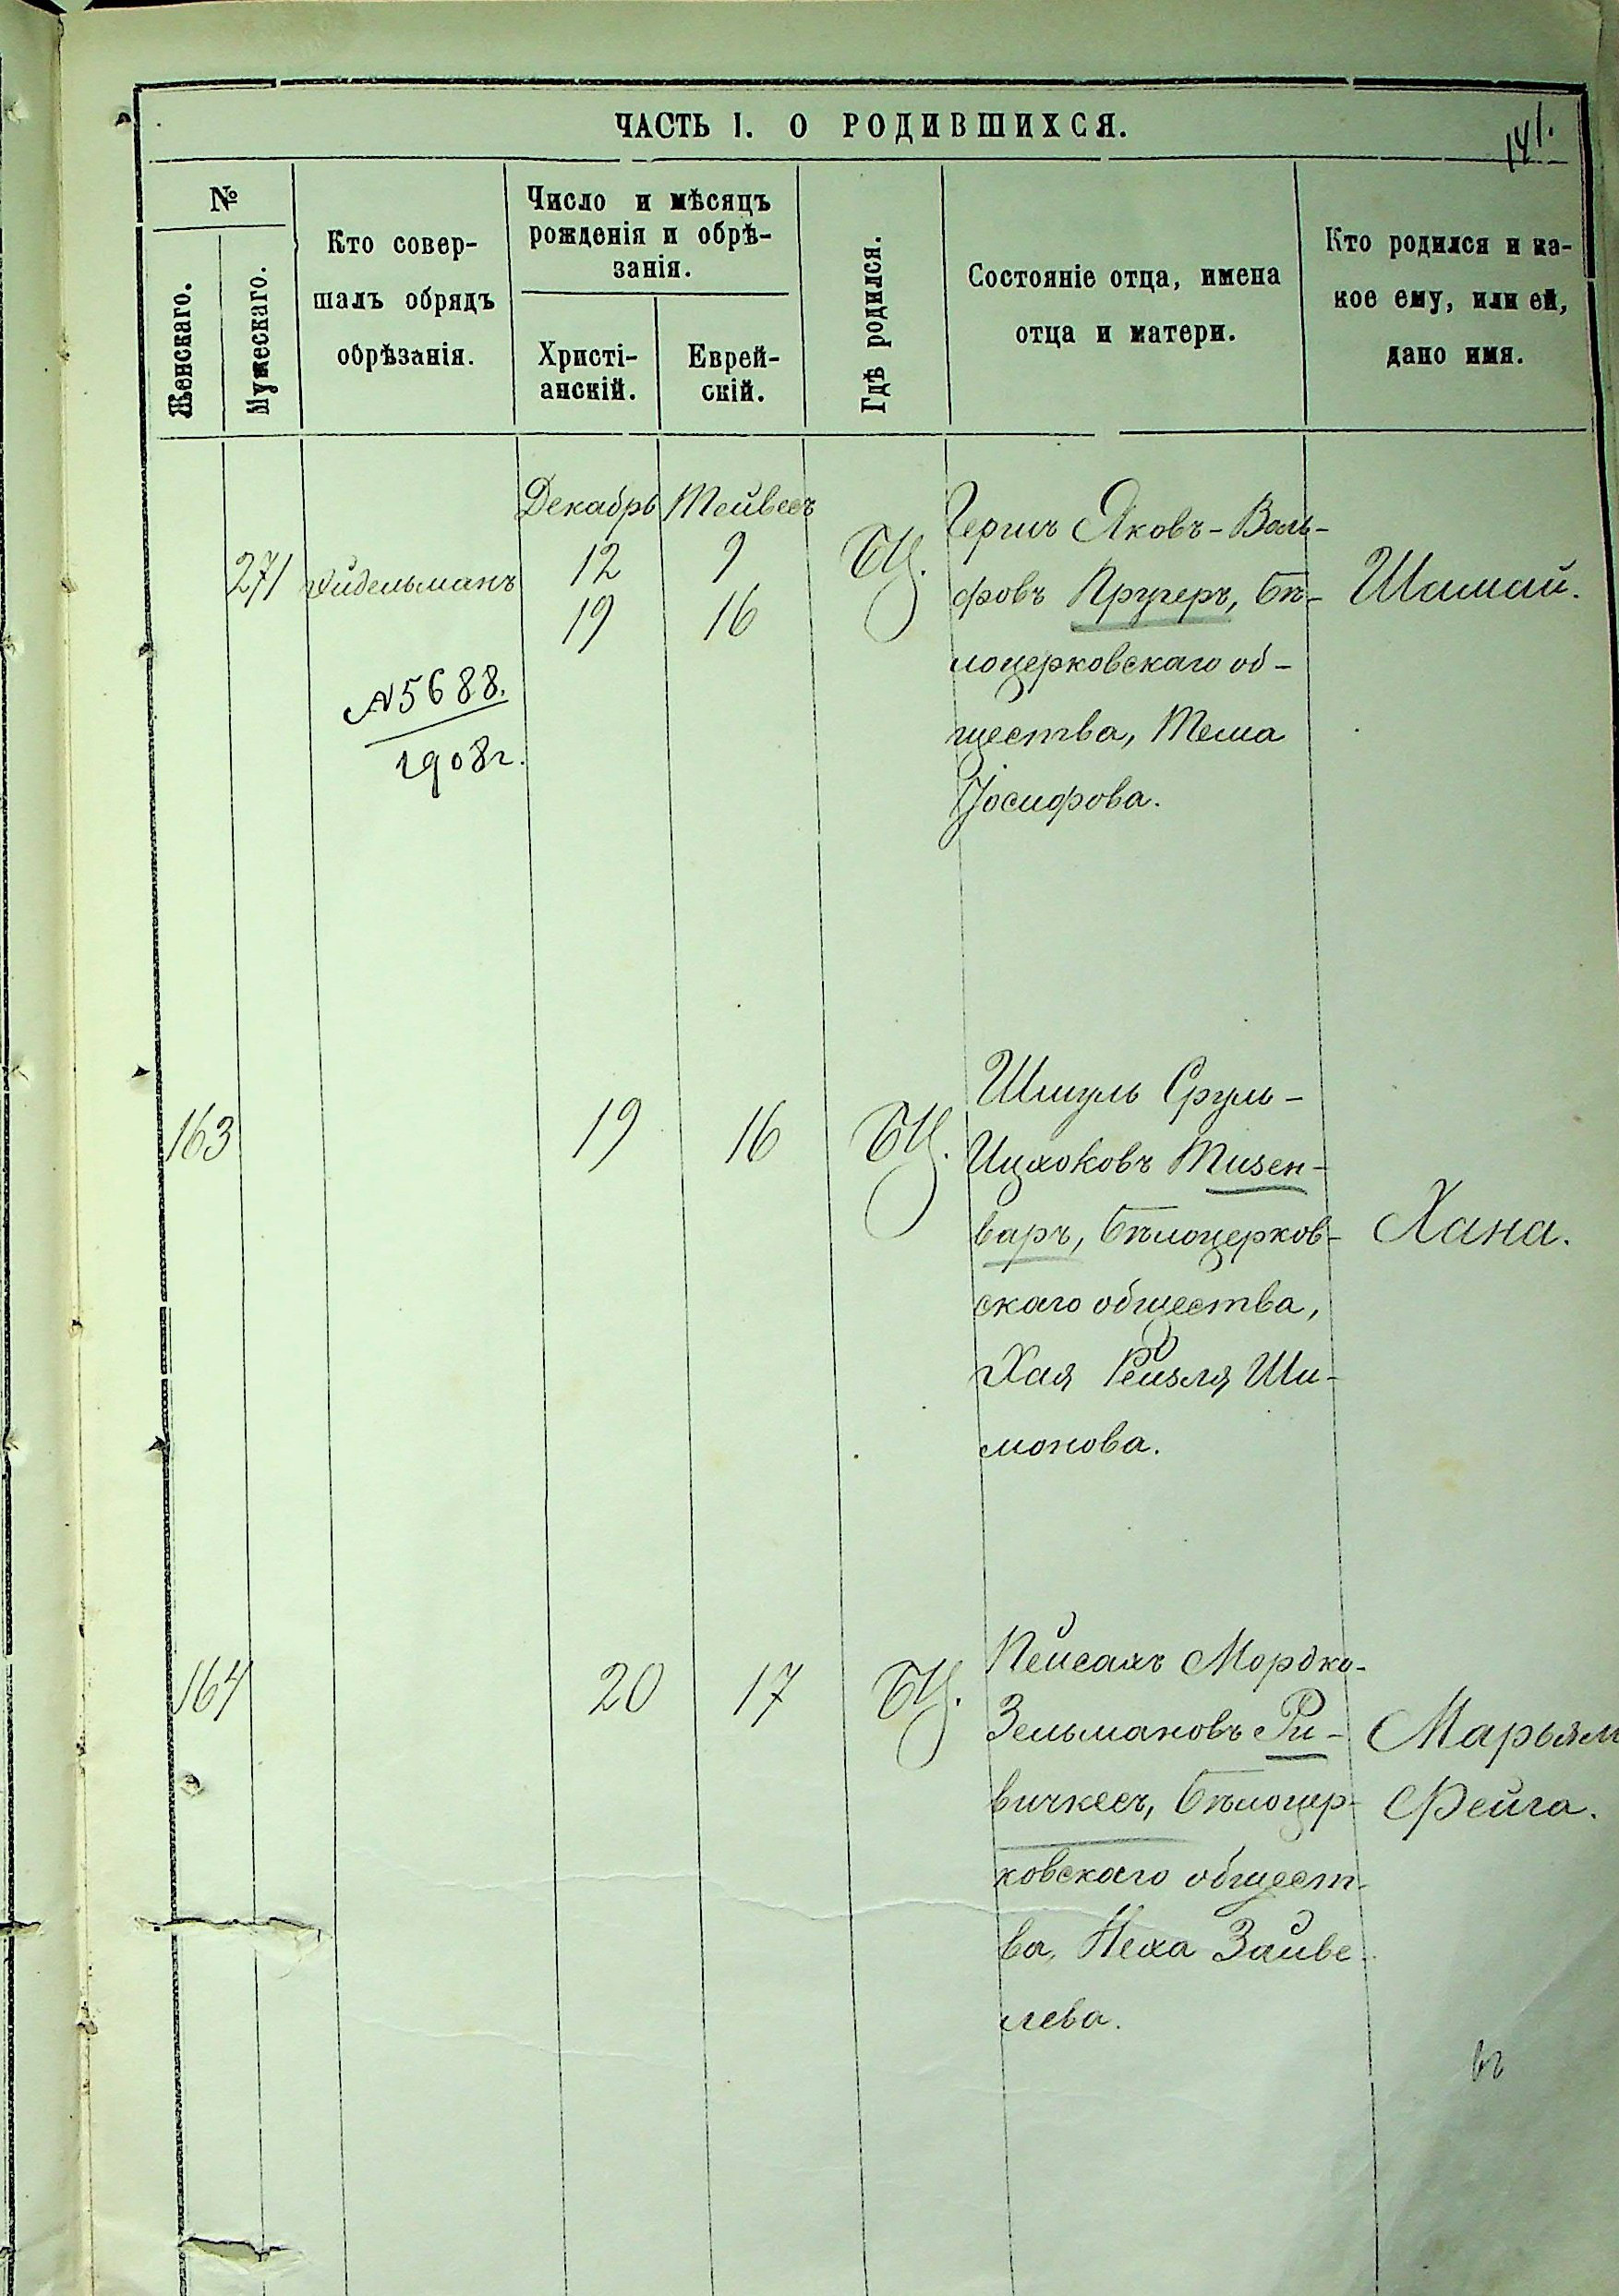 ЧАСТЬ I. О РОДИВШИХСЯ.
141.
№
Женскаго.
Мужескаго.
Кто совер-
шалъ обрядъ
обрѣзанія.
Число и мѣсяцъ
рожденія и обрѣ-
занія.
Христі-
анскій.
Еврей-
скій.
Гдѣ родился.
Состояніе отца, имена
отца и матери.
Кто родился и ка-
кое ему, или ей,
дано имя.
Декабрь Тейвесъ
271
12 9
19 16
БЦ.
Гершъ Яковъ-Воль-
фовъ Пругеръ, Бѣ-
лоцерковскаго об-
щества, Тема
Іосифова.
Шамай.
N5688.
1908г.
163 19 16 БЦ.
Шмуль Сруль-
Ицхоковъ Тизен-
варъ, Бѣлоцерков-
скаго общества,
Хая Рейзля Ши-
монова.
Хана.
164 20 17 БЦ.
Пейсахъ Мордко-
Зельмановъ Ри-
вичкесъ, Бѣлоцер-
ковскаго общест-
ва, Неха Зайве-
лева.
Марьям
Фейга.